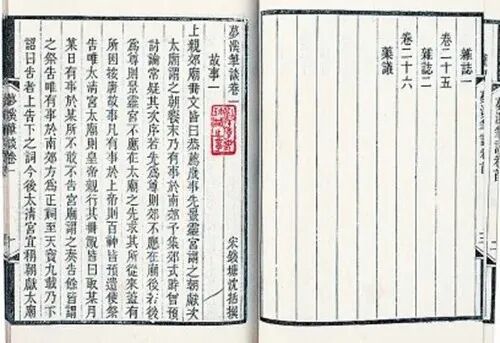 雜誌一
卷二十五
雜誌二
卷二十六
藥議
夢溪筆談卷一
故事一
宋錢塘沈括撰
上親郊廟冊文皆曰恭薦歲事先景靈宮謂之朝獻次
太廟謂之朝饗末乃有事於南郊予集郊式時曾預
討論常疑其次序若先為尊則郊不應在廟後若後
為尊則景靈宮不應在太廟之先求其所從來蓋有
所因按唐故事凡有事於上帝則百神皆預遣使祭
告唯太清宮太廟則皇帝親行其冊祝皆曰取某月
某日有事於某所不敢不告宮廟謂之奏告餘皆謂
之祭告唯有事於南郊方為正祠至天寶九載乃下
詔曰告者上告下之詞今後太清宮宜稱朝獻太廟
夢溪筆談卷一
一